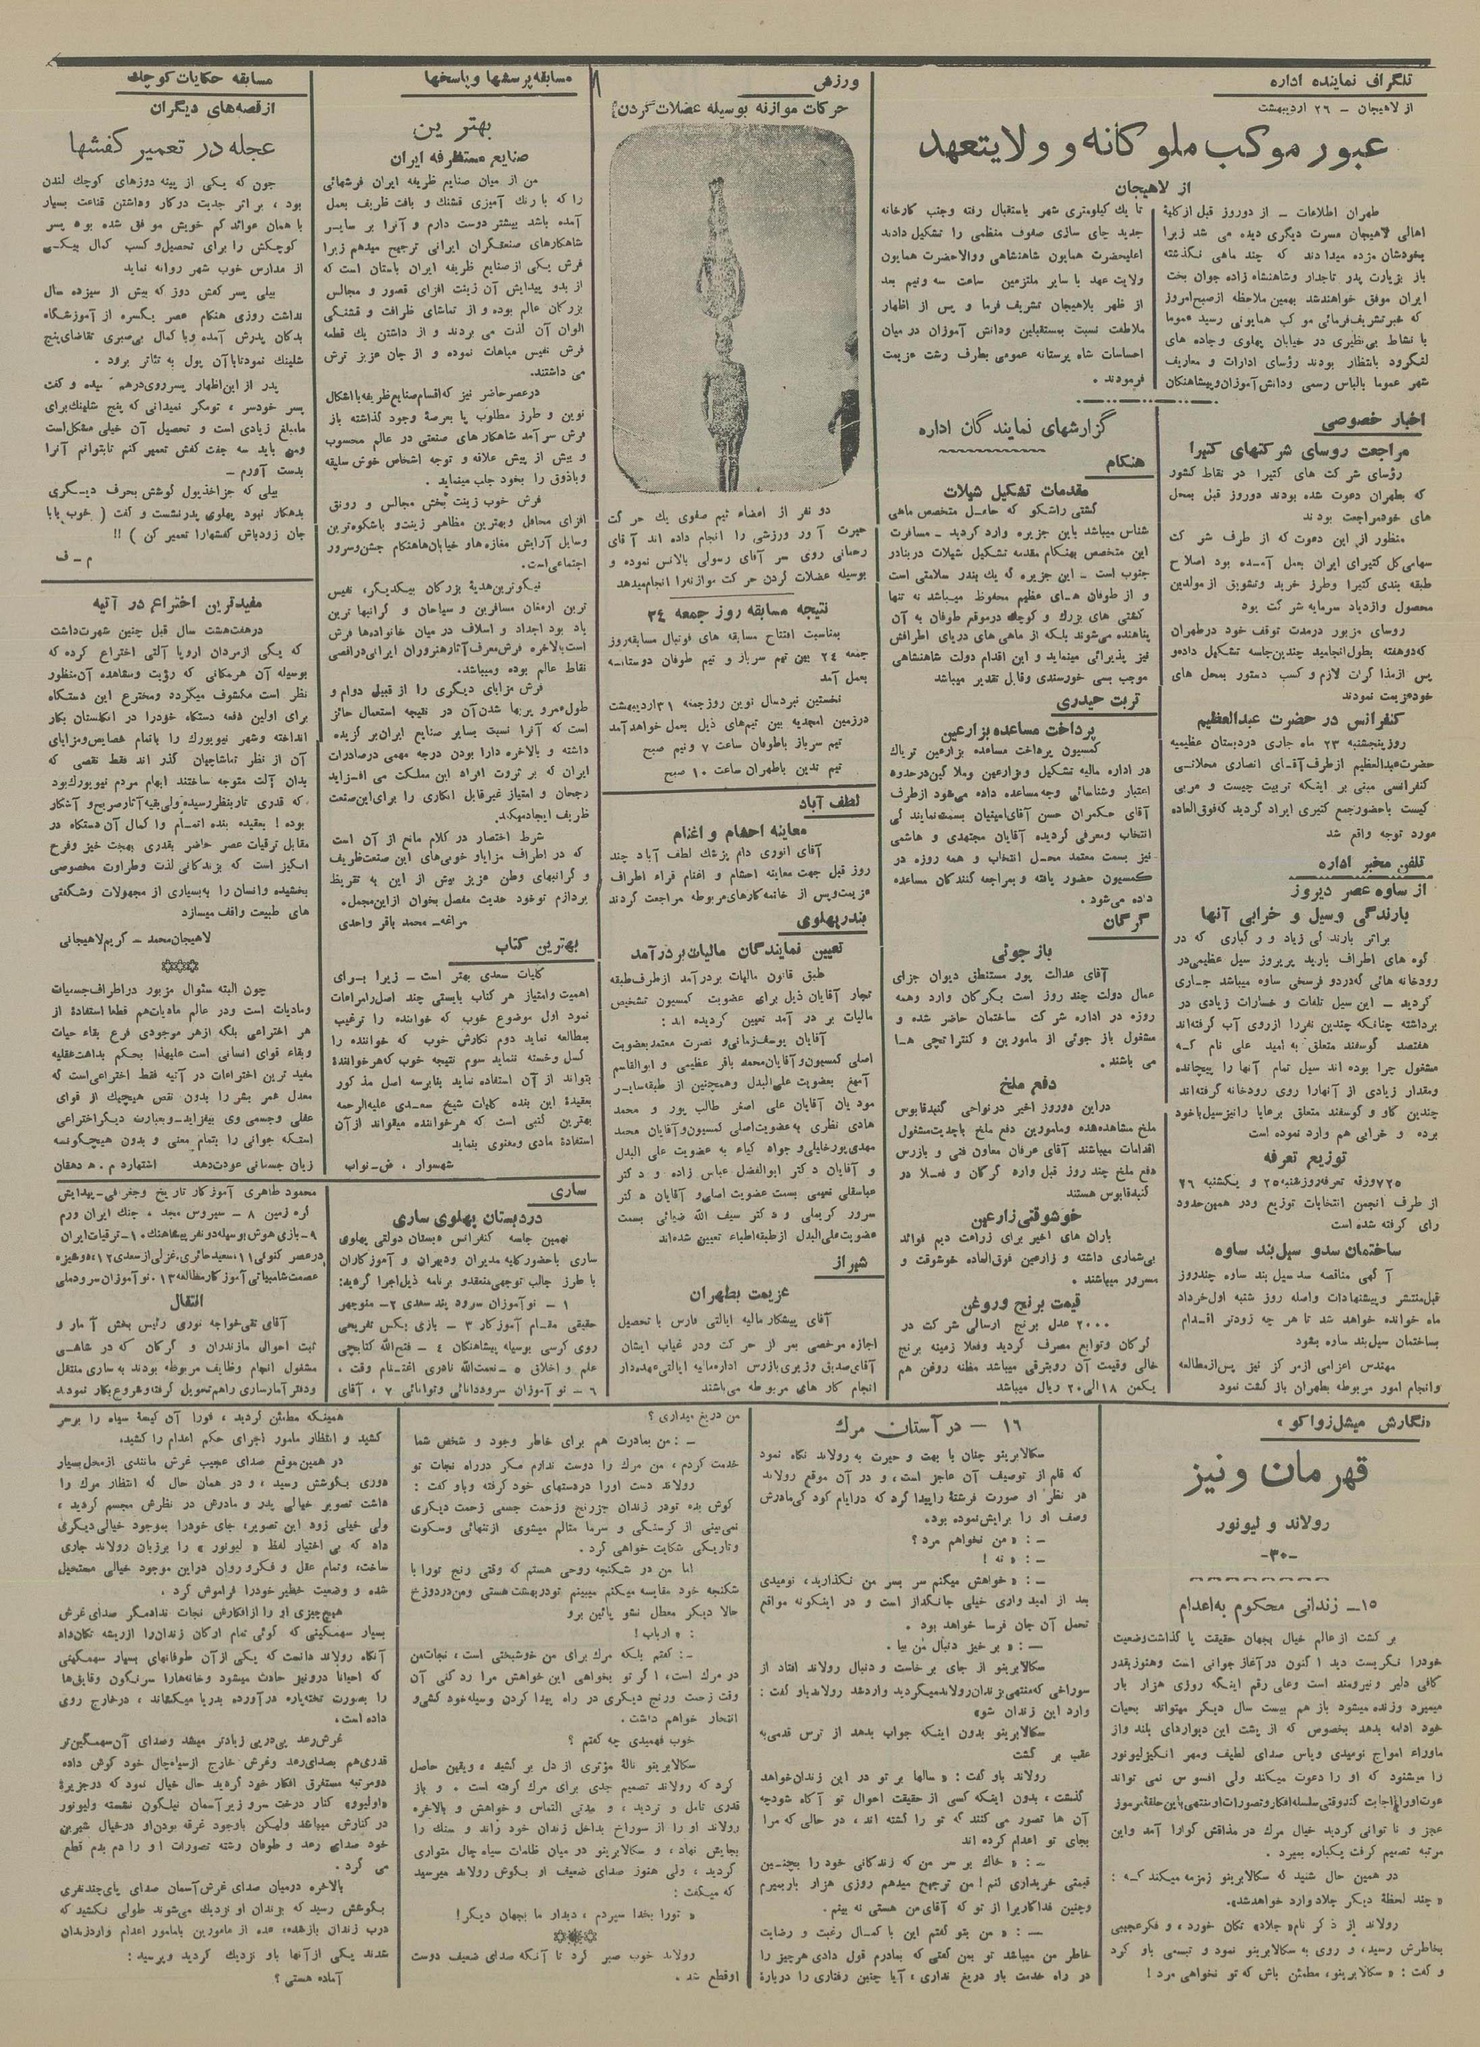 تلگراف نماینده اداره
از لاهیجان – ۲۶ اردیبهشت
عبور موکب ملوکانه و ولایتعهد
از لاهیجان
طهران اطلاعات – از دوروز قبل از کلیهٔ
اهالی لاهیجان مسرت دیگری دیده می شد زیرا
بخودشان مژده میدادند که چند ماهی نگذشته
باز بزیارت پدر تاجدار وشاهنشاه زاده جوان بخت
ایران موفق خواهندشد بهمین ملاحظه ازصبح امروز
که خبرتشریف فرمائی موکب همایونی رسید عموما
با نشاط بی نظیری در خیابان پهلوی وجاده های
لنگرود بانتظار بودند رؤسای ادارات و معاریف
شهر عموما بالباس رسمی ودانش آموزان وپیشاهنگان
تا یك کیلومتری شهر باستقبال رفته وجنب کارخانه
جدید چای سازی صفوف منظمی را تشکیل دادند
اعلیحضرت همایون شاهنشاهی ووالاحضرت همایون
ولایت عهد با سایر ملتزمین ساعت سه ونیم بعد
از ظهر بلاهیجان تشریف فرما و پس از اظهار
ملاطفت نسبت بمستقبلین ودانش آموزان در میان
احساسات شاه پرستانه عمومی بطرف رشت عزیمت
فرمودند .
اخبار خصوصی
مراجعت روسای شرکتهای کتیرا
رؤسای شرکت های کتیرا در نقاط کشور
که بطهران دعوت شده بودند دوروز قبل بمحل
های خودمراجعت بودند
منظور از این دعوت که از طرف شرکت
سهامی کل کتیرای ایران بعمل آمده بود اصلاح
طبقه بندی کتیرا وطرز خرید وتشویق از مولدین
محصول وازدیاد سرمایه شرکت بود
روسای مزبور درمدت توقف خود درطهران
که دوهفته بطول انجامید چندین جلسه تشکیل داده و
پس ازمذاکرات لازم و کسب دستور بمحل های
خود عزیمت نمودند
کنفرانس در حضرت عبدالعظیم
روز پنجشنبه ۲۳ ماه جاری دردبستان عظیمیه
حضرت عبدالعظیم ازطرف آقای انصاری محلاتی
کنفرانسی مبنی بر اینکه تربیت چیست و مربی
کیست باحضورجمع کثیری ایراد گردید که فوق العاده
مورد توجه واقع شد
تلفن مخبر اداره
از ساوه عصر دیروز
بارندگی وسیل و خرابی آنها
براثر بارندگی زیاد و رگباری که در
کوه های اطراف بارید پریروز سیل عظیمی در
رودخانه هائی که دردو فرسخی ساوه میباشد جاری
گردید – این سیل تلفات و خسارات زیادی در
برداشته چنانکه چندین نفررا ازروی آب گرفته اند
هفتصد گوسفند متعلق به امید علی نام که
مشغول چرا بوده اند سیل تمام آنها را پیچانده
ومقدار زیادی از آنهارا روی رودخانه گرفته اند
چندین گاو و گوسفند متعلق برعایا رانیزسیل باخود
برده و خرابی هم وارد نموده است
توزیع تعرفه
۷۲۵ ورقه تعرفه روزشنبه ۲۵ و یکشنبه ۲۶
از طرف انجمن انتخابات توزیع ودر همین حدود
رای گرفته شده است
ساختمان سدو سیل بند ساوه
آگهی مناقصه سد سیل بند ساوه چندروز
قبل منتشر وپیشنهادات واصله روز شنبه اول خرداد
ماه خوانده خواهد شد تا هر چه زودتر اقدام
بساختمان سیل بند ساوه بشود
مهندس اعزامی ازمرکز نیز پس ازمطالعه
وانجام امور مربوطه بطهران باز گشت نمود
گزارشهای نمایندگان اداره
هنگام
مقدمات تشکیل شیلات
کشتی راشکو که حامل متخصص ماهی
شناس میباشد باین جزیره وارد گردید – مسافرت
این متخصص بهنگام مقدمه تشکیل شیلات دربنادر
جنوب است – این جزیره که یك بندر سلامتی است
و از طوفان های عظیم محفوظ میباشد نه تنها
کشتی های بزرك و کوچك درموقع طوفان به آن
پناهنده می شوند بلکه از ماهی های دریای اطرافش
نیز پذیرائی مینماید و این اقدام دولت شاهنشاهی
موجب بسی خورسندی وقابل تقدیر میباشد
تربت حیدری
پرداخت مساعده بزارعین
کمسیون پرداخت مساعده بزارعین تریاك
در اداره مالیه تشکیل وزارعین وملاکین درحدوده
اعتبار وشناسائی وجه مساعده داده می شود ازطرف
آقای حکمران حسن آقای امینیان بسمت نمایندگی
انتخاب ومعرفی گردیده آقایان مجتهدی و هاشمی
نیز بسمت معتمد محل انتخاب و همه روزه در
کمسیون حضور یافته وبمراجعه کنندگان مساعده
داده می شود .
گرگان
بازجوئی
آقای عدالت پور مستنطق دیوان جزای
عمال دولت چند روز است بگرگان وارد وهمه
روزه در اداره شرکت ساختمان حاضر شده و
مشغول باز جوئی از مامورین و کنتراتچی ها
می باشند .
دفع ملخ
دراین دوروز اخیر درنواحی گنبدقابوس
ملخ مشاهده شده ومامورین دفع ملخ باجدیت مشغول
اقدامات میباشند آقای عرفان معاون فنی و بازرس
دفع ملخ چند روز قبل وارد گرگان و فعلا در
گنبدقابوس هستند
خوشوقتی زارعین
باران های اخیر برای زراعت دیم فوائد
بی شماری داشته و زارعین فوق العاده خوشوقت و
مسرور میباشند .
قیمت برنج وروغن
۲۰۰۰ عدل برنج ارسالی شرکت در
گرگان وتوابع مصرف گردید وفعلا زمینه برنج
خالی وقیمت آن روبترقی میباشد مظنه روغن هم
یکمن ۱۸ الی ۲۰ ریال میباشد
ورزش
حرکات موازنه بوسیله عضلات گردن
دو نفر از اعضاء تیم صفوی یك حرکت
حیرت آور ورزشی را انجام داده اند آقای
رحمانی روی سر آقای رسولی بالانس نموده و
بوسیله عضلات گردن حرکت موازنه را انجام میدهد
نتیجه مسابقه روز جمعه ۲۴
بمناسبت افتتاح مسابقه های فوتبال مسابقه روز
جمعه ۲۴ بین تیم سرباز و تیم طوفان دوستانه
بعمل آمد
نخستین نبردسال نوین روز جمعه ۳۱ اردیبهشت
درزمین امجدیه بین تیم های ذیل بعمل خواهدآمد
تیم سرباز باطوفان ساعت ۷ و نیم صبح
تیم تدین باطهران ساعت ۱۰ صبح
لطف آباد
معاینه احشام و اغنام
آقای انوری دام پزشك لطف آباد چند
روز قبل جهت معاینه احشام و اغنام قراء اطراف
عزیمت وپس از خاتمه کارهای مربوطه مراجعت کردند
بندرپهلوی
تعیین نمایندگان مالیات بردرآمد
طبق قانون مالیات بردرآمد ازطرف طبقه
تجار آقایان ذیل برای عضویت کمسیون تشخیص
مالیات بر در آمد تعیین گردیده اند :
آقایان یوسف زمانی و نصرت معتمد بعضویت
اصلی کمسیون و آقایان محمد باقر عظیمی و ابوالقاسم
آمیغ بعضویت علی البدل وهمچنین از طبقه سایر
مودیان آقایان علی اصغر طالب پور و محمد
هادی نظری به عضویت اصلی کمسیون و آقایان محمد
مهدی پورخلیلی و جواد کیاء به عضویت علی البدل
و آقایان دکتر ابوالفضل عباس زاده و دکتر
عباسقلی نعیمی بسمت عضویت اصلی و آقایان دکتر
سرور کریملی و دکتر سیف الله ضیائی بسمت
عضویت علی البدل از طبقه اطباء تعیین شده اند
شیراز
عزیمت بطهران
آقای پیشکار مالیه ایالتی فارس با تحصیل
اجازه مرخصی بمرکز حرکت ودر غیاب ایشان
آقای صدیق وزیری بازرس اداره مالیه ایالتی عهده دار
انجام کار های مربوطه می باشند
مسابقه پرسشها و پاسخها
بهترین
صنایع مستظرفه ایران
من از میان صنایع ظریفه ایران فرشهائی
را که با رنك آمیزی قشنك و بافت ظریف بعمل
آمده باشد بیشتر دوست دارم و آنرا بر سایر
شاهکارهای صنعتگران ایرانی ترجیح میدهم زیرا
فرش یکی از صنایع ظریفه ایران باستان است که
از بدو پیدایش آن زینت افزای قصور و مجالس
بزرگان عالم بوده و از تماشای ظرافت و قشنگی
الوان آن لذت می بردند و از داشتن یك قطعه
فرش نفیس مباهات نموده و از جان عزیز ترش
می داشتند.
درعصر حاضر نیز که اقسام صنایع ظریفه بااشکال
نوین و طرز مطلوب پا بعرصهٔ وجود گذاشته باز
فرش سر آمد شاهکار های صنعتی در عالم محسوب
و بیش از پیش علاقه و توجه اشخاص خوش سلیقه
وباذوق را بخود جلب مینماید .
فرش خوب زینت بخش مجالس و رونق
افزای محافل وبهترین مظاهر زینت و باشکوه ترین
وسایل آرایش مغازه ها و خیابان ها هنگام جشن وسرور
اجتماعی است.
نیکوترین هدیهٔ بزرگان بیکدیگر، نفیس
ترین ارمغان مسافرین و سیاحان و گرانبها ترین
یاد بود اجداد و اسلاف در میان خانواده ها فرش
است بالاخره فرش معرف آثار هنروران ایرانی در اقصی
نقاط عالم بوده ومیباشد.
فرش مزایای دیگری را از قبیل دوام و
طول عمر و پربها شدن آن در نتیجه استعمال حائز
است که آنرا نسبت بسایر صنایع ایران بر گزیده
داشته و بالاخره دارا بودن درجه مهمی درصادرات
ایران که بر ثروت افراد این مملکت می افزاید
رجحان و امتیاز غیرقابل انکاری را برای این صنعت
ظریف ایجاد میکند.
شرط اختصار در کلام مانع از آن است
که در اطراف مزایاو خوبی های این صنعت ظریف
و گرانبهای وطن عزیز بیش از این به تقریظ
بردازم توخود حدیث مفصل بخوان ازاین مجمل.
مراغه – محمد باقر واحدی
بهترین کتاب
کلیات سعدی بهتر است – زیرا برای
اهمیت وامتیاز هر کتاب بایستی چند اصل رامراعات
نمود اول موضوع خوب که خواننده را ترغیب
بمطالعه نماید دوم نگارش خوب که خواننده را
کسل وخسته ننماید سوم نتیجه خوب که هرخوانندهٔ
بتواند از آن استفاده نماید بنابرسه اصل مذکور
بعقیدهٔ این بنده کلیات شیخ سعدی علیه الرحمه
بهترین کتبی است که هرخواننده میتواند ازآن
استفادهٔ مادی ومعنوی بنماید
شهسوار . ض – نواب
ساری
دردبستان پهلوی ساری
نهمین جلسه کنفرانس دبستان دولتی پهلوی
ساری باحضور کلیه مدیران ودبیران و آموزگاران
با طرز جالب توجهی منعقدو برنامه ذیل اجرا گردید:
۱ – نوآموزان سرود پند سعدی ۲ – منوچهر
حقیقی مقام آموزگار ۳ – بازی بکس تفریحی
روی کرسی بوسیله پیشاهنگان ۴ – فتح الله کتابچی
علم و اخلاق ۵ – نعمت الله نادری اغتنام وقت .
۶ – نو آموزان سرود دانائی وتوانائی ۷ . آقای
مسابقه حکایات کوچك
از قصه های دیگران
عجله در تعمیر کفشها
جون که یکی از پینه دوزهای کوچك لندن
بود ، بر اثر جدیت درکار وداشتن قناعت بسیار
با همان عوائد کم خویش موفق شده بود پسر
کوچکش را برای تحصیل و کسب کمال بیکی
از مدارس خوب شهر روانه نماید
بیلی پسر کفش دوز که بیش از سیزده سال
نداشت روزی هنگام عصر یکسره از آموزشگاه
بدکان پدرش آمده وبا کمال بی صبری تقاضای پنج
شلینك نمود تاباآن پول به تئاتر برود .
پدر از این اظهار پسرروی درهم کشیده و گفت
پسر خودسر ، تومگر نمیدانی که پنج شلینك برای
ما مبلغ زیادی است و تحصیل آن خیلی مشکل است
ومن باید سه جفت کفش تعمیر کنم تابتوانم آنرا
بدست آورم –
بیلی که جزاخذپول گوشش بحرف دیگری
بدهکار نبود پهلوی پدرنشست و گفت ( خوب پاپا
جان زودباش کفشهارا تعمیر کن ) !!
م – ف
مفیدترین اختراع در آتیه
درهفت هشت سال قبل چنین شهرت داشت
که یکی از مردان اروپا آلتی اختراع کرده که
بوسیله آن هرمکانی که رؤیت ومشاهده آن منظور
نظر است مکشوف میگردد ومخترع این دستگاه
برای اولین دفعه دستگاه خودرا در انگلستان بکار
انداخته وشهر نیویورك را باتمام خصایص ومزایای
آن از نظر تماشاچیان گذر اند فقط نقصی که
بدان آلت متوجه ساختند ابهام مردم نیویورك بود
که قدری تاربنظر رسیده ولی بقیه آثار صریح و آشکار
بوده ! بعقیده بنده اتمام وا کمال آن دستگاه در
مقابل ترقیات عصر حاضر بقدری بهجت خیز وفرح
انگیز است که بزندگانی لذت وطراوت مخصوصی
بخشیده وانسان را به بسیاری از مجهولات وشگفتی
های طبیعت واقف میسازد
لاهیجان محمد – کریم لاهیجانی
چون البته سئوال مزبور در اطراف جسمیات
ومادیات است ودر عالم مادیات هم قطعا استفادهٔ از
هر اختراعی بلکه از هر موجودی فرع بقاء حیات
وبقاء قوای انسانی است علیهذا بحکم بداهت عقلیه
مفید ترین اختراعات در آتیه فقط اختراعی است که
معدل عمر بشر را بدون نقص هیچیك از قوای
عقلی وجسمی وی بیفزاید – وبعبارت دیگر اختراعی
استکه جوانی را بتمام معنی و بدون هیچگونه
زیان جسمانی عودت دهد اشتهارد م . ه دهقان
محمود طاهری آموزگار تاریخ وجغرافی – پیدایش
کره زمین ۸ – سیروس مجد . جنك ایران ورم
۹ – بازی هوش بوسیله دو نفر پیشاهنك ۱۰ – ترقیات ایران
درعصر کنونی ۱۱ . سعید حائری . غزلی از سعدی ۱۲ . دوشیزه
عصمت شامبیاتی آموزگار مطالعه ۱۳ . نو آموزان سرود ملی
انتقال
آقای تقی خواجه نوری رئیس بخش آمار و
ثبت احوال مازندران و گرگان که در شاهی
مشغول انجام وظایف مربوطه بودند به ساری منتقل
ودفتر آمار ساری راهم تحویل گرفته و شروع بکار نمودند
«نگارش میشل زواکو»
قهرمان ونیز
رولاند و لیونور
–۳۰–
۱۵ – زندانی محکوم به اعدام
بر گشت از عالم خیال بجهان حقیقت با گذاشت وضعیت
خودرا نگریست دید اکنون درآغاز جوانی است وهنوز بقدر
کافی دلیر ونیرومند است وعلی رقم اینکه روزی هزار بار
میمیرد وزنده میشود باز هم بیست سال دیگر میتواند بحیات
خود ادامه بدهد بخصوص که از پشت این دیوارهای بلند واز
ماوراء امواج نومیدی ویاس صدای لطیف ومهر انگیز لیونور
را میشنود که او را دعوت میکند ولی افسوس نمی تواند
دعوت اورا اجابت کند وقتی سلسله افکار وتصورات او منتهی باین حلقهٔ مرموز
عجز و نا توانی گردید خیال مرك در مذاقش گوارا آمد واین
مرتبه تصمیم گرفت یکباره بمیرد .
در همین حال شنید که سکالابرینو زمزمه میکند که :
« چند لحظهٔ دیگر جلاد وارد خواهدشد».
رولاند از ذکر نام «جلاد» تکان خورد ، و فکر عجیبی
بخاطرش رسید ، و روی به سکالابرینو نمود و تبسمی باو کرد
و گفت : « سکالابرینو ، مطمئن باش که تو نخواهی مرد !
۱۶ – در آستان مرك
سکالابرینو چنان با بهت و حیرت به رولاند نگاه نمود
که قلم از توصیف آن عاجز است ، و در آن موقع رولاند
در نظر او صورت فرشتهٔ راپیدا کرد که درایام کودکی مادرش
وصف او را برایش نموده بود.
– : « من نخواهم مرد ؟
– : « نه !
– : « خواهش میکنم سر بسر من نگذارید ، نومیدی
بعد از امیدواری خیلی جانگداز است و در اینگونه مواقع
تحمل آن جان فرسا خواهد بود .
– : « بر خیز دنبال من بیا .
سکالابرینو از جای بر خاست و دنبال رولاند افتاد از
سوراخی که منتهی بزندان رولاندمیگردید واردشد رولاند باو گفت :
وارد این زندان شو»
سکالابرینو بدون اینکه جواب بدهد از ترس قدمی به
عقب بر گشت
رولاند باو گفت : «سالها بر تو در این زندان خواهد
گذشت ، بدون اینکه کسی از حقیقت احوال تو آگاه شودچه
آن ها تصور می کنند که تو را کشته اند ، در حالی که مرا
بجای تو اعدام کرده اند
– : « خاك بر سر من که زندگانی خود را بچنین
قیمتی خریداری کنم ! من ترجیح میدهم روزی هزار باربمیرم
وچنین فداکاریرا از تو که آقای من هستی نه بینم .
– : « من بتو گفتم این با کمال رغبت و رضایت
خاطر من میباشد تو بمن گفتی که بمادرم قول دادی هرچیز را
در راه خدمت باو دریغ نداری ، آیا چنین رفتاری را دربارهٔ
من دریغ میداری ؟
– : من بمادرت هم برای خاطر وجود و شخص شما
خدمت کردم ، من مرك را دوست ندارم مگر درراه نجات تو
رولاند دست اورا دردستهای خود گرفته وباو گفت :
گوش بده تودر زندان جزرنج وزحمت جسمی زحمت دیگری
نمی بینی از گرسنگی و سرما متالم میشوی ازتنهائی وسکوت
وتاریکی شکایت خواهی کرد .
اما من در شکنجه روحی هستم که وقتی رنج تورا با
شکنجه خود مقایسه میکنم میبینم تودربهشت هستی ومن دردوزخ
حالا دیگر معطل نشو پائین برو
: « ارباب !
– : گفتم بلکه مرك برای من خوشبختی است ، نجات من
در مرك است ، اگر تو بخواهی این خواهش مرا رد کنی آن
وقت زحمت ورنج دیگری در راه پیدا کردن وسیله خود کشی و
انتحار خواهم داشت.
خوب فهمیدی چه گفتم ؟
سکالابرینو نالهٔ مؤثری از دل بر کشید ، ویقین حاصل
کرد که رولاند تصمیم جدی برای مرك گرفته است . و باز
قدری تامل و تردید ، و مدتی التماس و خواهش و بالاخره
رولاند او را از سوراخ بداخل زندان خود راند و سنك را
بجایش نهاد ، و سکالابرینو در میان ظلمات سیاه چال متواری
گردید ، ولی هنوز صدای ضعیف او بگوش رولاند میرسید
که میگفت :
« تورا بخدا سپردم ، دیدار ما بجهان دیگر!
رولاند خوب صبر کرد تا آنکه صدای ضعیف دوست
او قطع شد .
همینکه مطمئن گردید ، فورا آن کیسهٔ سیاه را برسر
کشید و انتظار مامور اجرای حکم اعدام را کشید.
در همین موقع صدای عجیب غرش مانندی از محل بسیار
دوری بگوشش رسید ، و در همان حال که انتظار مرك را
داشت تصویر خیالی پدر و مادرش در نظرش مجسم گردید ،
ولی خیلی زود این تصویر، جای خودرا بموجود خیالی دیگری
داد که بی اختیار لفظ « لیونور » را برزبان رولاند جاری
ساخت، وتمام عقل و فکر و روان دراین موجود خیالی مستحیل
شده و وضعیت خطیر خودرا فراموش کرد .
هیچ چیزی او را از افکارش نجات نداد مگر صدای غرش
بسیار سهمگینی که گوئی تمام ارکان زندان را ازریشه تکان داد
آنگاه رولاند دانست که یکی از آن طوفانهای بسیار سهمگینی
که احیانا درونیز حادث میشود وخانه هارا سرنگون وقایق ها
را بصورت تخته پاره درآورده بدریا میکشاند ، درخارج روی
داده است.
غرش رعد پی درپی زیادتر میشد وصدای آن سهمگین تر
قدری هم بصدای رعد وغرش خارج ازسیاه چال خود گوش داده
دومرتبه مستغرق افکار خود گردید حال خیال نمود که درجزیرهٔ
«اولیوو» کنار درخت سرو زیر آسمان نیلگون نشسته ولیونور
در کنارش میباشد ولیکن باوجود غرقه بودن او درخیال شیرین
خود صدای رعد و طوفان رشته تصورات او را دم بدم قطع
می کرد .
بالاخره درمیان صدای غرش آسمان صدای پای چندنفری
بگوشش رسید که بزندان او نزدیك می شوند طولی نکشید که
درب زندان بازشده، عده از مامورین بامامور اعدام واردزندان
شدند یکی از آنها باو نزدیك گردید وپرسید :
آماده هستی ؟